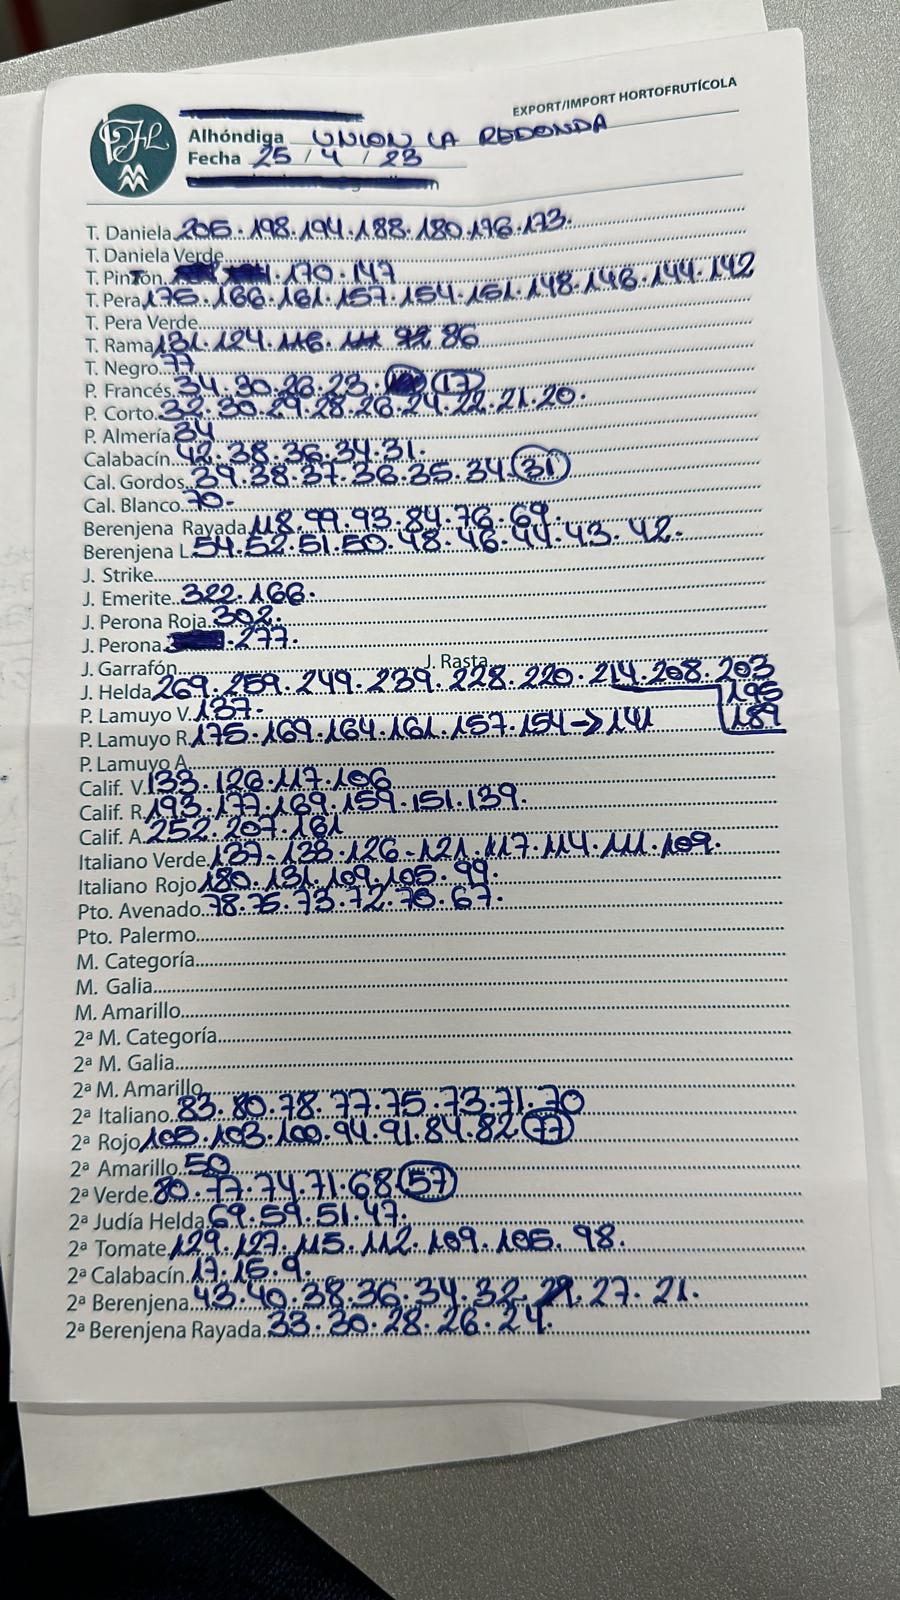 EXPORT/IMPORT HORTOFRUTÍCOLA
Alhóndiga UNION LA REDONDA
Fecha 25 / 4 / 23
T. Daniela 205.198.194.188.180.176.173.
T. Daniela Verde
T. Pintón .170.147
T. Pera 175.166.161.157.154.151.148.146.144.142
T. Pera Verde
T. Rama 131.124.116. 111 92 86
T. Negro 77
P. Francés 34.30.26.23. 17
P. Corto 32.30.29.28.26.24.22.21.20.
P. Almería 34
Calabacín 42.38.36.34.31.
Cal. Gordos 39.38.37.36.35.34 31
Cal. Blanco 70-
Berenjena Rayada 118.99.93.84.76.69.
Berenjena L 54.52.51.50.48.46.44.43.42.
J. Strike
J. Emerite 322.166.
J. Perona Roja 302.
J. Perona .277.
J. Garrafón J. Rasta
J. Helda 269.259.249.239.228.220.214.208.203
195
P. Lamuyo V. 137.
189
P. Lamuyo R 175.169.164.161.157.154→141
P. Lamuyo A
Calif. V. 133.126.117.106
Calif. R 193.177.169.159.151.139.
Calif. A 252.207.161
Italiano Verde 137-133.126-121.117.114.111.109.
Italiano Rojo 180.131.109.105.99.
Pto. Avenado 78.75.73.72.70.67.
Pto. Palermo
M. Categoría
M. Galia
M. Amarillo
2ª M. Categoría
2ª M. Galia
2ª M. Amarillo
2ª Italiano 83.80.78.77.75.73.71.70
2ª Rojo 105.103.100.94.91.84.82 77
2ª Amarillo 50
2ª Verde 80.77.74.71.68 57
2ª Judía Helda 69.59.51.47.
2ª Tomate 129.127.115.112.109.105.98.
2ª Calabacín 17.15.9.
2ª Berenjena 43.40.38.36.34.32. 29.27.21.
2ª Berenjena Rayada 33.30.28.26.24.